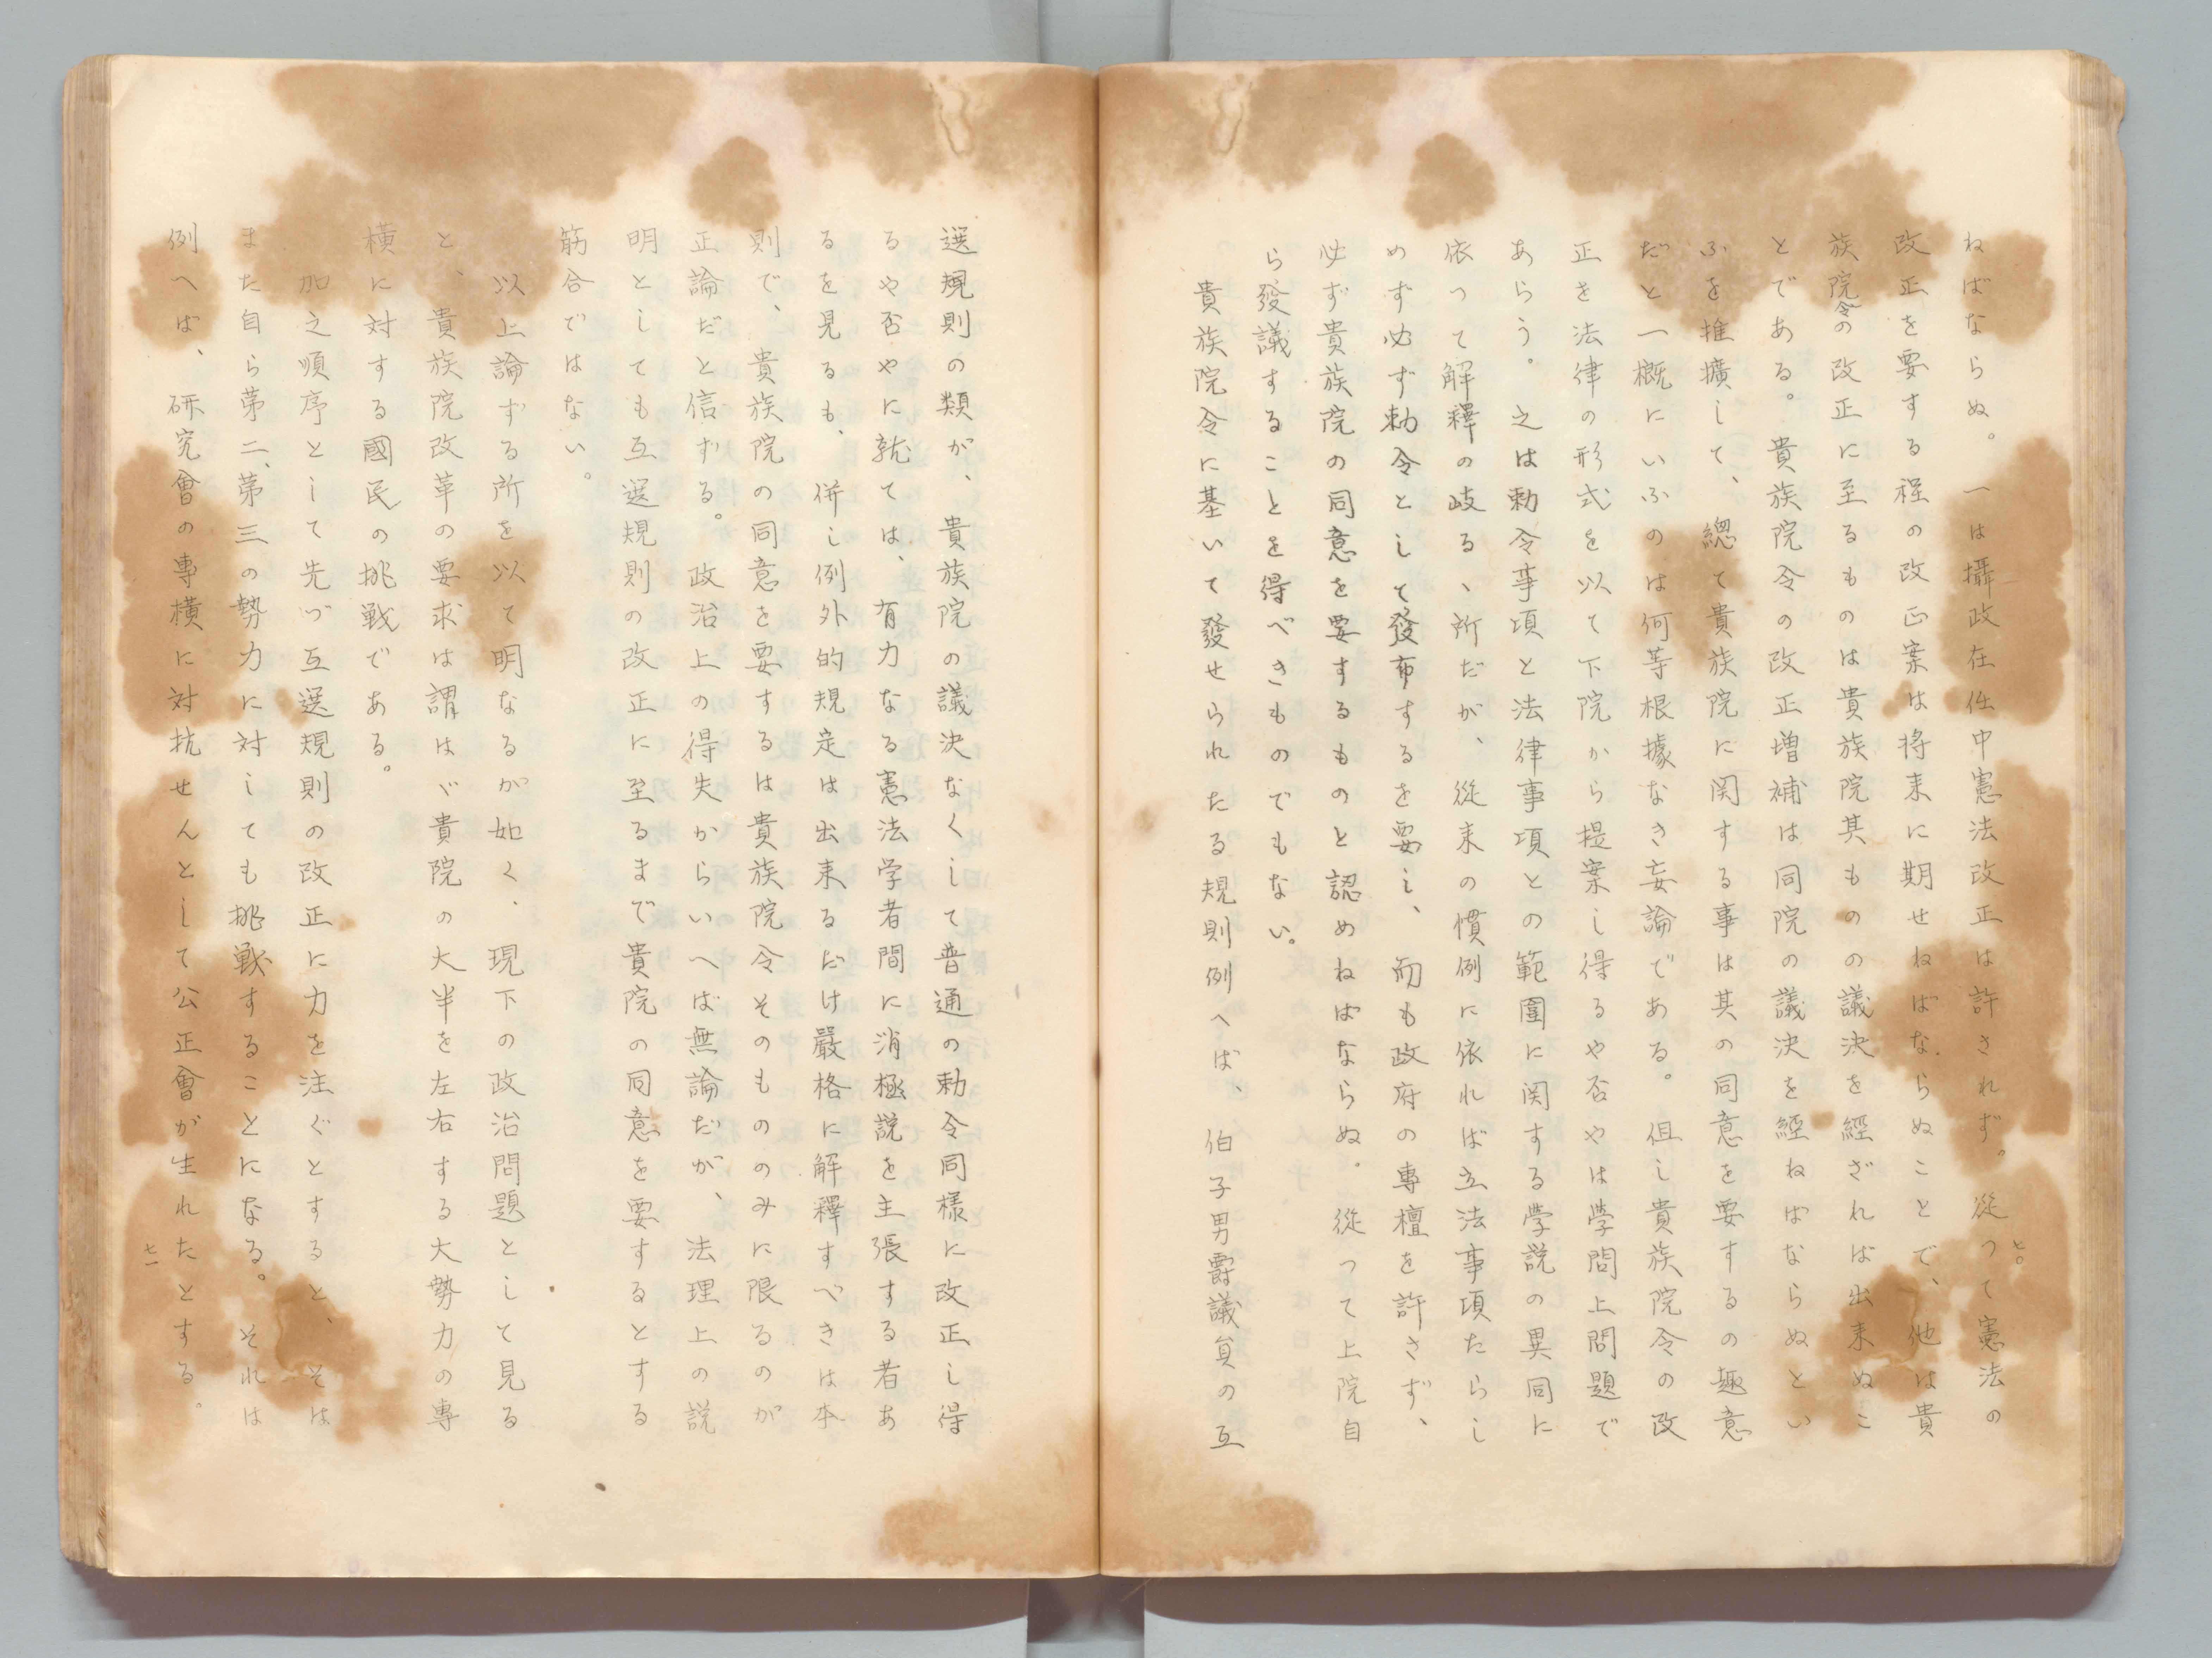 ねばならぬ。一は攝政在任中憲法改正は許されず。從つて憲法の
改正を要する程の改正案は将来に期せねばならぬことで、他は貴
族院令の改正に至るものは貴族院其ものの議決を經ざれば出来ぬこ
とである。貴族院令の改正増補は同院の議決を經ねばならぬとい
ふを推擴して、總て貴族院に関する事は其の同意を要するの趣意
だと一概にいふのは何等根據なき妄論である。但し貴族院令の改
正を法律の形式を以て下院から提案し得るや否やは學問上問題で
あらう。之は勅令事項と法律事項との範圍に関する學説の異同に
依つて解釋の岐るゝ所だが、從来の慣例に依れば立法事項たらし
めず必ず勅令として發布するを要し、而も政府の專檀を許さず、
必ず貴族院の同意を要するものと認めねばならぬ。從つて上院自
ら發議することを得べきものでもない。
貴族院令に基いて發せられたる規則例へば、伯子男爵議員の互
七〇
選規則の類が、貴族院の議決なくして普通の勅令同様に改正し得
るや否やに就ては、有力なる憲法学者間に消極説を主張する者あ
るを見るも、併し例外的規定は出来るだけ嚴格に解釋すべきは本
則で、貴族院の同意を要するは貴族院令そのもののみに限るのが
正論だと信ずる。政治上の得失からいへば無論だが、法理上の説
明としても互選規則の改正に至るまで貴院の同意を要するとする
筋合ではない。
以上論ずる所を以て明なるが如く、現下の政治問題として見る
と、貴族院改革の要求は謂はゞ貴院の大半を左右する大勢力の專
横に対する國民の挑戦である。
加之順序として先づ互選規則の改正に力を注ぐとすると、そは
また自ら第二、第三の勢力に対しても挑戦することになる。それは
例へば、研究會の專横に対抗せんとして公正會が生れたとする。
七一